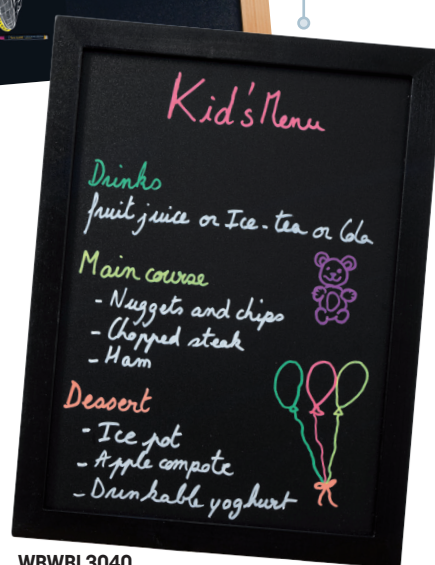 Kid's Menu
Drinks
fruit juice or Ice-tea or Cola
Main course
- Nuggets and chips
- Chopped steak
- Ham
Dessert
- Ice pot
- Apple compote
- Drinkable yoghurt
WBWBL3040